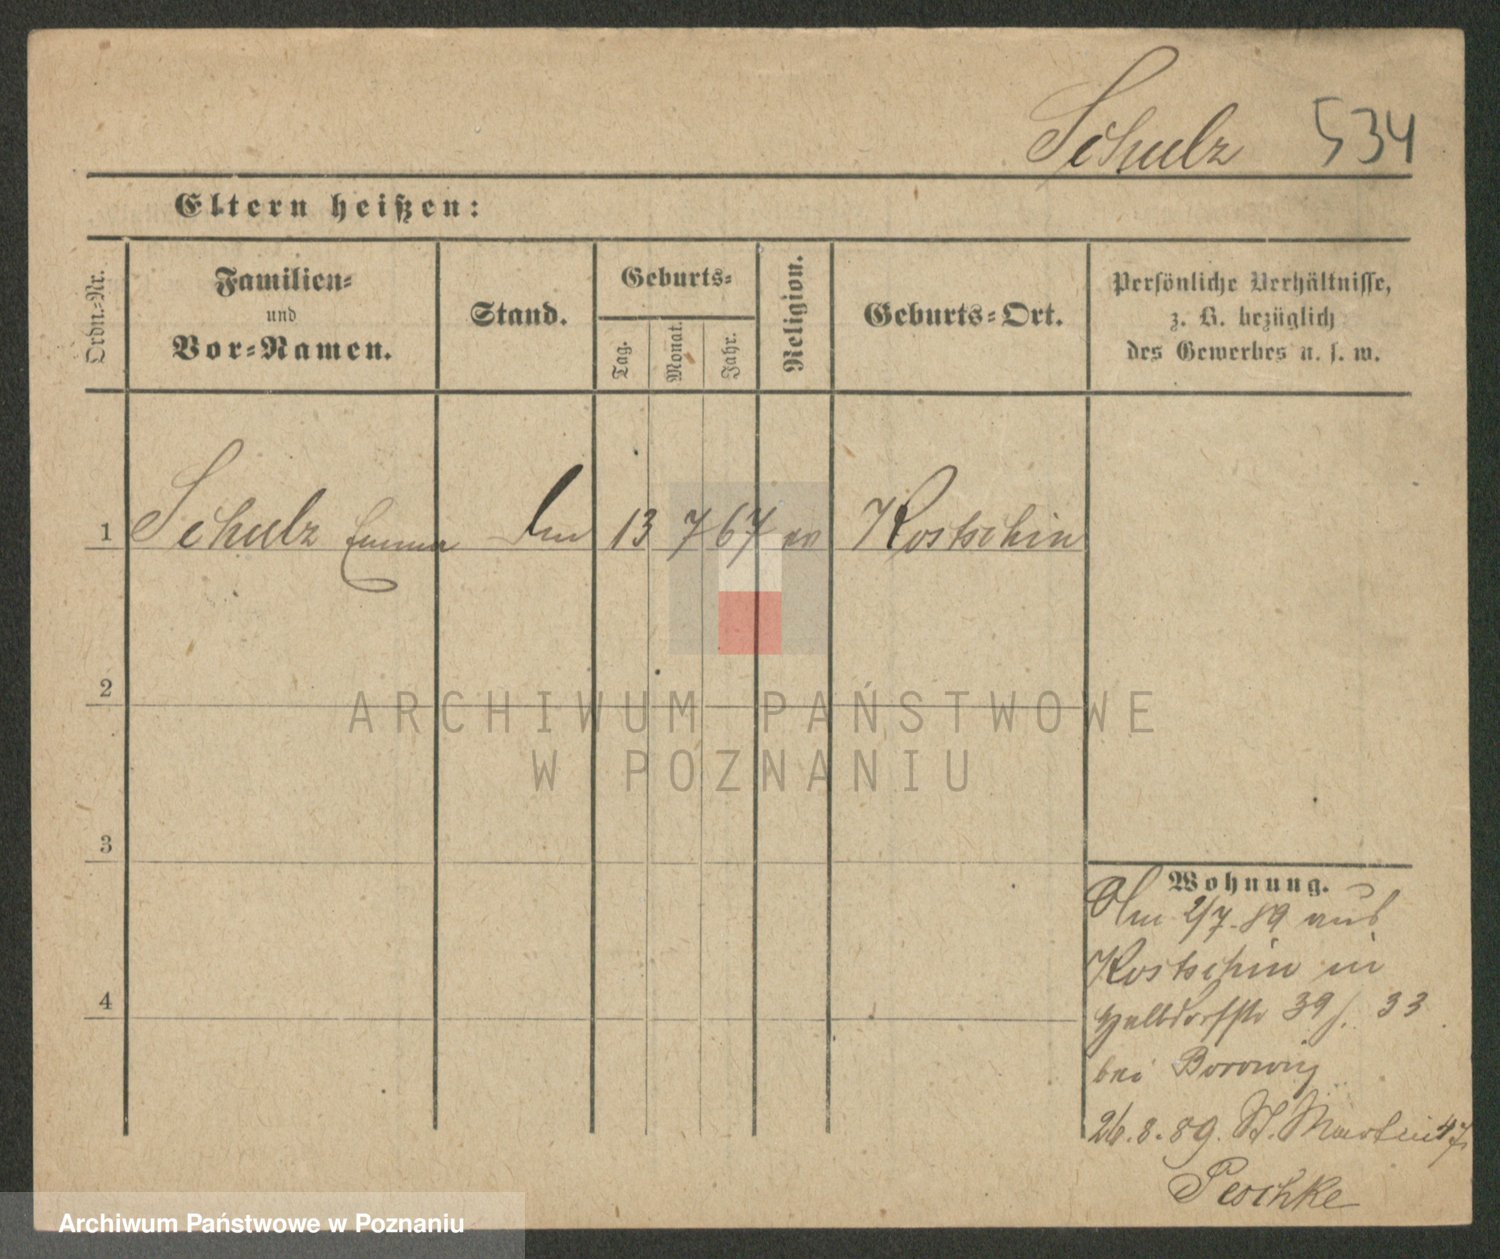 Schulz 534
Eltern heißen:
Ordn.-Nr.
Familien-
und
Vor-Namen.
Stand.
Geburts-
Tag.
Monat.
Jahr.
Religion.
Geburts-Ort.
Persönliche Verhältnisse,
z. B. bezüglich
des Gewerbes u. s. w.
1 Schulz Emma 13 7 67 Kostschin
2
3
4
Wohnung.
2/7.89 aus
Kostschin in
Halbdorfstr 39 33
bei
26.8.89. St. Martin 47
Peschke
ARCHIWUM PAŃSTWOWE
W POZNANIU
Archiwum Państwowe w Poznaniu